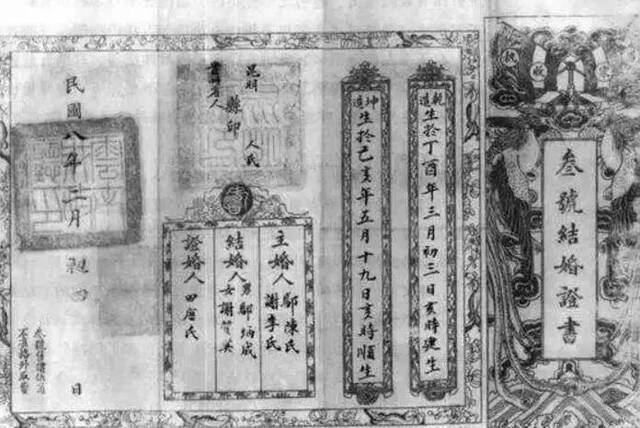 叁號結婚證書
乾造
生於丁酉年三月初三日亥時建生
坤造
生於己亥年五月十九日亥時順生
昆明
縣印
人民
主婚人
鄢陳氏
謝李氏
結婚人
男鄢炳成
女謝賀英
證婚人
田唐氏
民國八年二月
初四
日